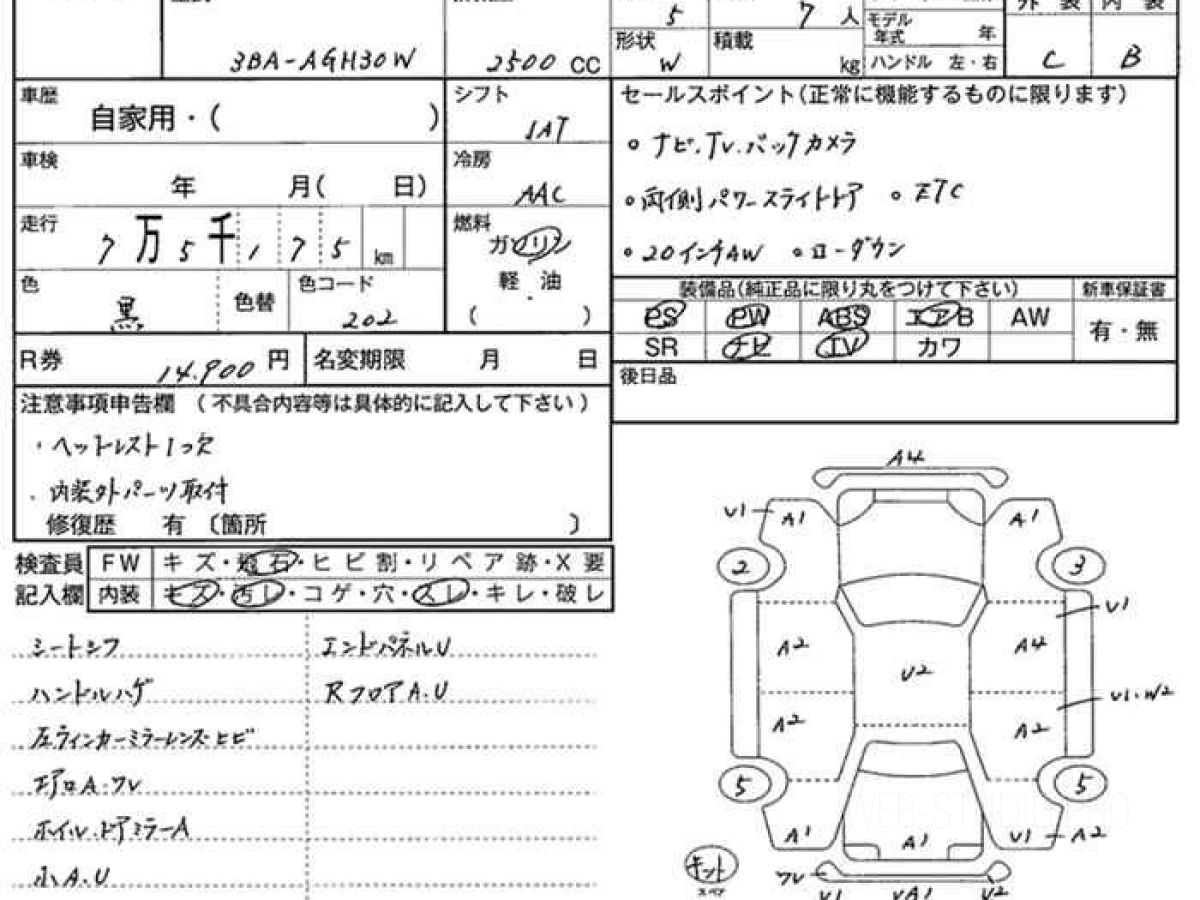 5 7 人 モデル年式 年 外装 内装
3BA-AGH30W 2500 CC 形状 W 積載 kg ハンドル 左・右 C B
車歴 自家用・( ) シフト IAT
セールスポイント(正常に機能するものに限ります)
車検 年 月( 日) 冷房 AAC
。ナビ.TV.バックカメラ
。両側パワースライドドア 。ETC
。20インチAW 。ローダウン
走行 7万5千175 km 燃料 ガソリン
軽油
( )
色 黒 色替 色コード 202
装備品(純正品に限り丸をつけて下さい) 新車保証書
PS PW ABS エアB AW 有・無
SR ナビ TV カワ
R券 14.900 円 名変期限 月 日
後日品
注意事項申告欄 (不具合内容等は具体的に記入して下さい)
・ヘットレスト1つ欠
・内装外パーツ取付
修復歴 有〔箇所 〕
検査員 FW キズ・飛石・ヒビ割・リペア跡・X要
記入欄 内装 キズ・汚レ・コゲ・穴・スレ・キレ・破レ
シートシワ エンドパネルU
ハンドルハゲ RフロアA.U
左ウィンカーミラーレンズヒビ
エアロA.ワレ
ホイル.ドアミラーA
小A.U
A4
U1 A1 A1
2 3
U1
A2 A4
U2
U1.W2
A2 A2
5 5
A1 A1 U1 A2
キント
スペア
ワレ
U1 UA1 U2